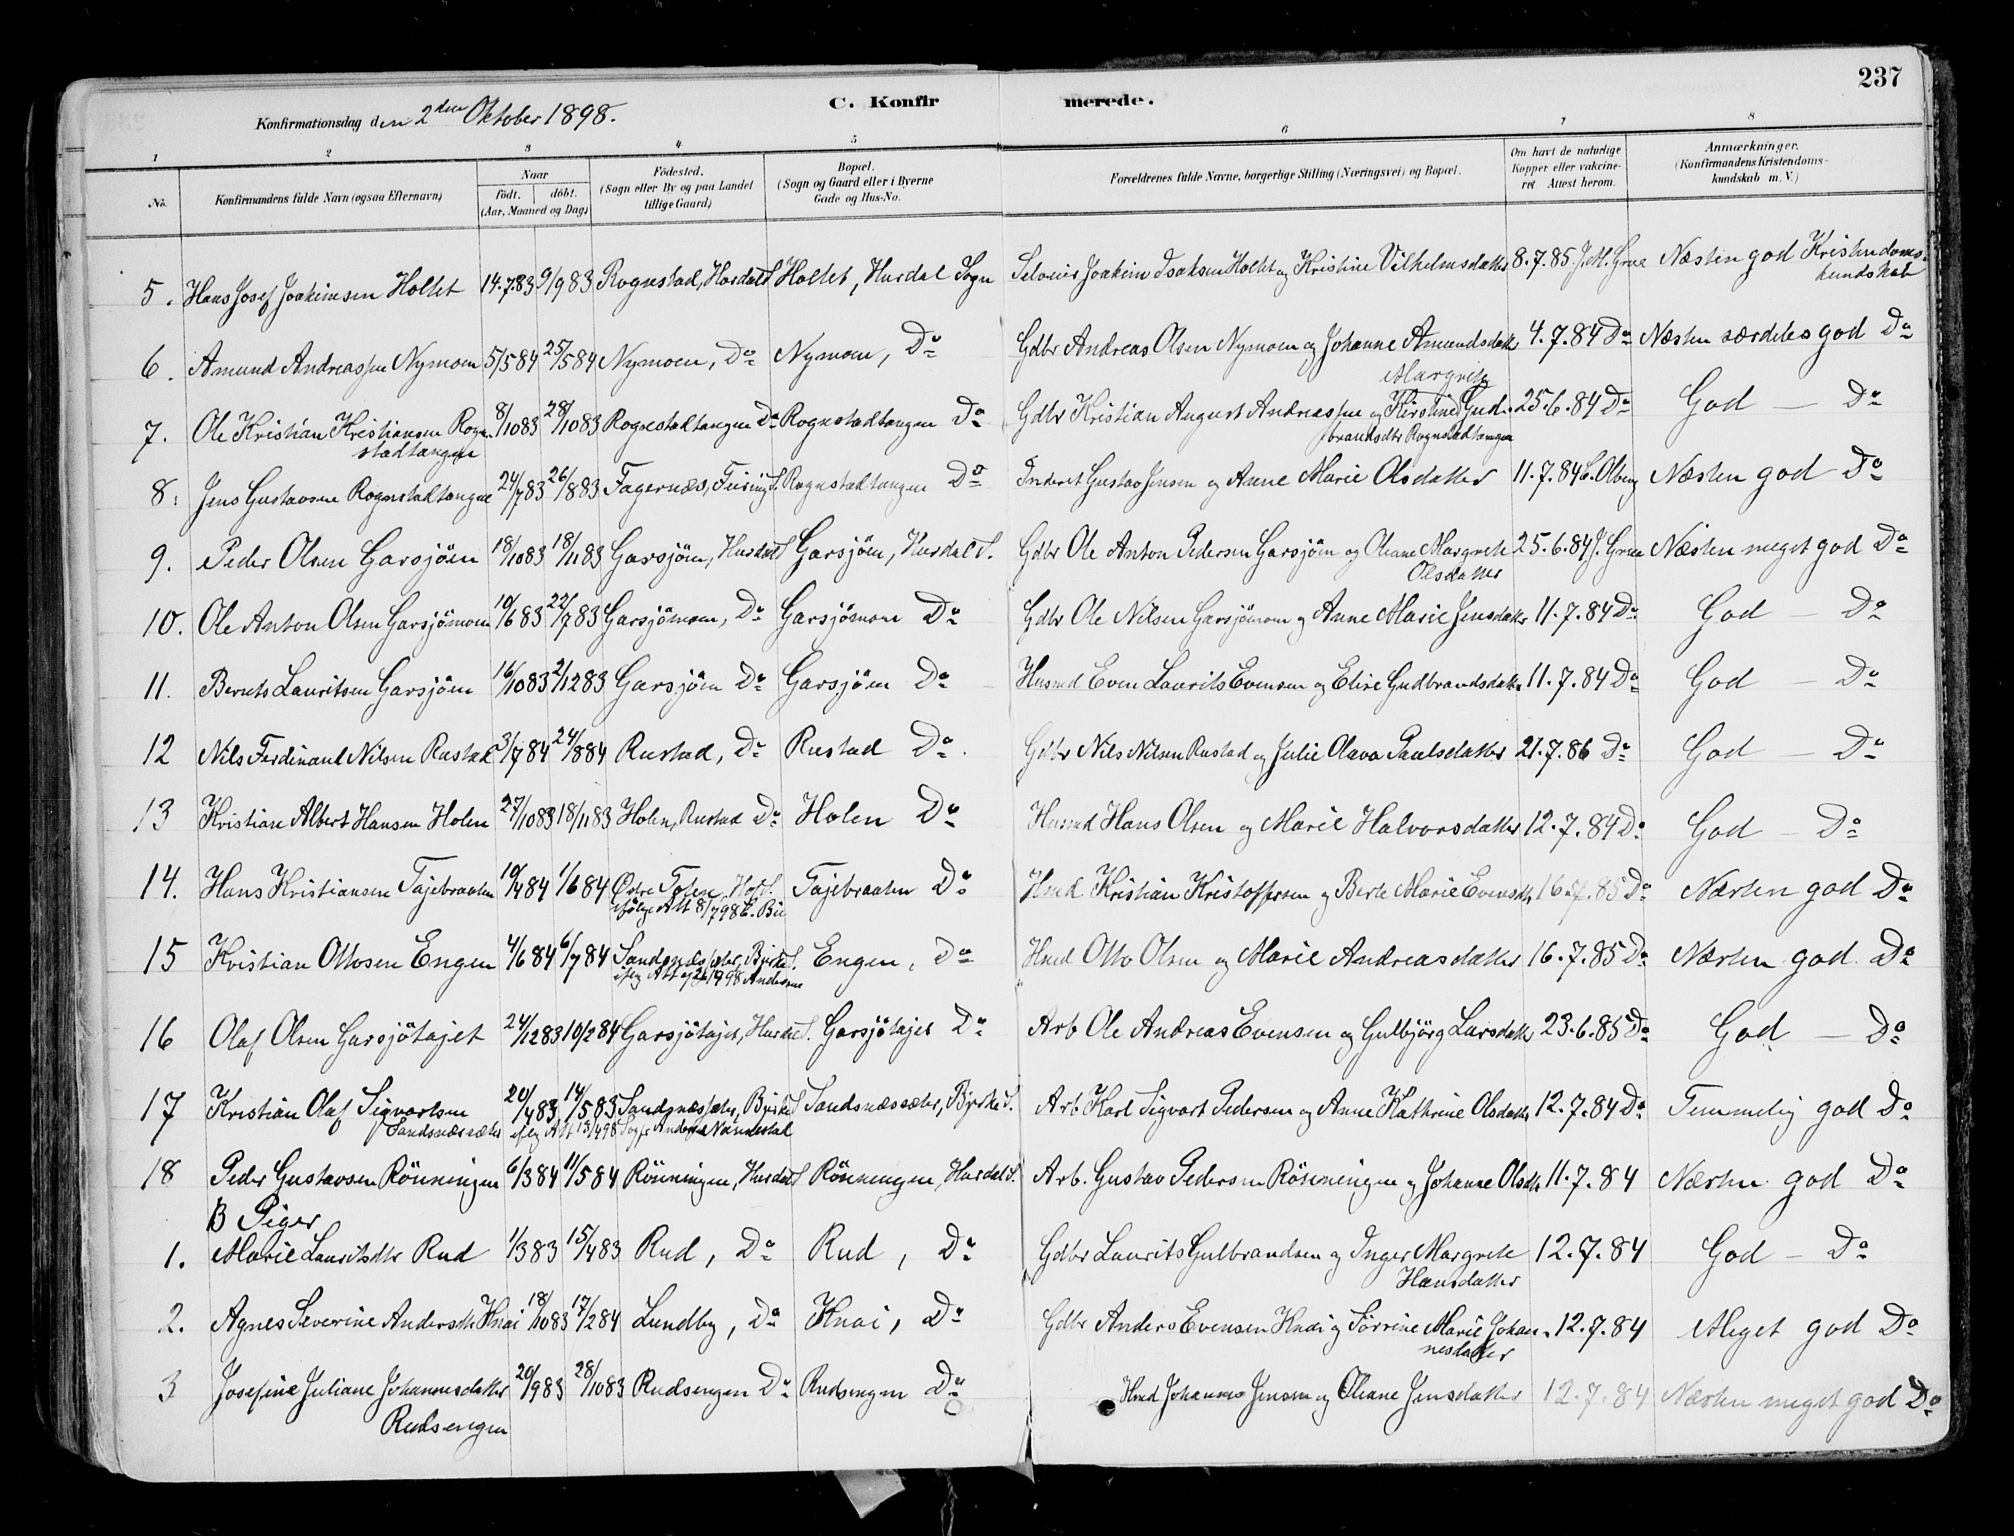 237
C. Konfir merede.
Konfirmationsdag den 2den Oktober 1898.
1 2 3 4 5 6 7 8
No. Konfirmandens fulde Navn (ogsaa Efternavn) Naar født. døbt. (Aar, Maaned og Dag) Fødested. (Sogn eller By og paa Landet tillige Gaard) Bopæl. (Sogn og Gaard eller i Byerne Gade og Hus-No. Forældrenes fulde Navne, borgerlige Stilling (Næringsvei) og Bopæl. Om havt de naturlige Kopper eller vakcineret. Attest herom. Anmærkninger. (Konfirmandens Kristendomskundskab m. V.)
5. Hans Josef Joakimsen Holtet 14.7.83 9/983 Rognstad, Hurdal S Holtet, Hurdal Sogn Selveier Joakim Isaksen Holtet og Kristine Vilhelmsdatter 8.7.85 J. M. Grue Næsten god Kristendoms-
kundskab
6. Amund Andreassen Nymoen 5/584 25/584 Nymoen, Do Nymoen, Do Gdbr Andreas Olsen Nymoen og Johanne Amundsdatter 4.7.84 Do Næsten særdeles god Do
Margrete
7. Ole Kristian Kristiansen Rogn- 8/1083 28/1083 Rognstadtangen Do Rognstadtangen Do Gdbr Kristian August Andreassen og Kirstine Gud- 25.6.84 Do God — Do
stadtangen brandsdtr Rognstadtangen
8. Jens Gustavsen Rognstadtangen 24/783 26/883 Fagernæs, Feiring S. Rognstadtangen Do Inderst Gustav Jensen og Anne Marie Olsdatter 11.7.84 Næsten god Do
9. Peder Olsen Garsjøen 18/1083 18/1183 Garsjøen, Hurdal S Garsjøen, Hurdal S. Gdbr Ole Anton Pedersen Garsjøen og Oleane Margrete 25.6.84 J. Grue Næsten meget god Do
Olsdatter
10. Ole Anton Olsen Garsjømoen 10/683 22/783 Garsjømoen, Do Garsjømoen Do Gdbr Ole Nilsen Garsjømoen og Anne Marie Jensdatter 11.7.84 Do God — Do
11. Bernts Lauritsen Garsjøen 16/1083 2/1283 Garsjøen Do Garsjøen Do Husmd Even Laurits Evensen og Elise Gudbrandsdatter 11.7.84 Do God — Do
12 Nils Ferdinand Nilsen Rustad 3/784 24/884 Rustad, Do Rustad Do Gdbr Nils Nilsen Rustad og Julie Olava Paulsdatter 21.7.86 Do God — Do
13 Kristian Albert Hansen Holen 27/1083 18/1183 Holen, Rustad Do Holen Do Husmd Hans Olsen og Marie Halvorsdatter 12.7.84 Do God — Do
14. Hans Kristiansen Tajebraaten 10/484 1/684 Østre Toten, Hof S. Tajebraaten Do Hmd Kristian Kristoffersen og Berte Marie Evensdtr 16.7.85 Do Næsten god Do
ifølge Att 8/798
15 Kristian Ottosen Engen 4/684 6/784 Sandsnessæter, Byrke S. Engen, Do Hmd Otto Olsen og Marie Andreasdatter 16.7.85 Do Næsten god Do
ifølg Att Andersen
16 Olaf Olsen Garsjøtajet 24/1283 10/284 Garsjøtajet, Hurdal S. Garsjøtajet Do Arb Ole Andreas Evensen og Gulbjørg Larsdatter 23.6.85 Do God — Do
17 Kristian Olaf Sigvartsen 20/483 14/583 Sandsnæssæter, Byrke S Sandsnæssæter, Byrke S. Arb Karl Sigvart Pedersen og Anne Kathrine Olsdatter 12.7.84 Do Temmelig god Do
Sandsnæssæter ifølg Att 13/498
18 Peder Gustavsen Rønningen 6/384 11/584 Rønningen, Hurdal S Rønningen, Hurdal S. Arb. Gustav Pedersen Rønningen og Johanne Olsdtr 11.7.84 Næsten god Do
B Piger
1. Marie Lauritsdtr Rud 1/383 15/483 Rud, Do Rud, Do Gdbr Laurits Gulbrandsen og Inger Margrete 12.7.84 God — Do
Hansdatter
2. Agnes Severine Andersdtr Knai 18/1083 17/284 Lundby, Do Knai, Do Gdbr Anders Evensen Knai og Sørrine Marie Johan- 12.7.84 Meget god Do
nesdatter
3 Josefine Juliane Johannesdatter 20/983 28/1083 Rudsengen Do Rudsengen Do Hmd Johannes Jensen og Oleane Jensdatter 12.7.84 Næsten meget god Do
Rudsengen